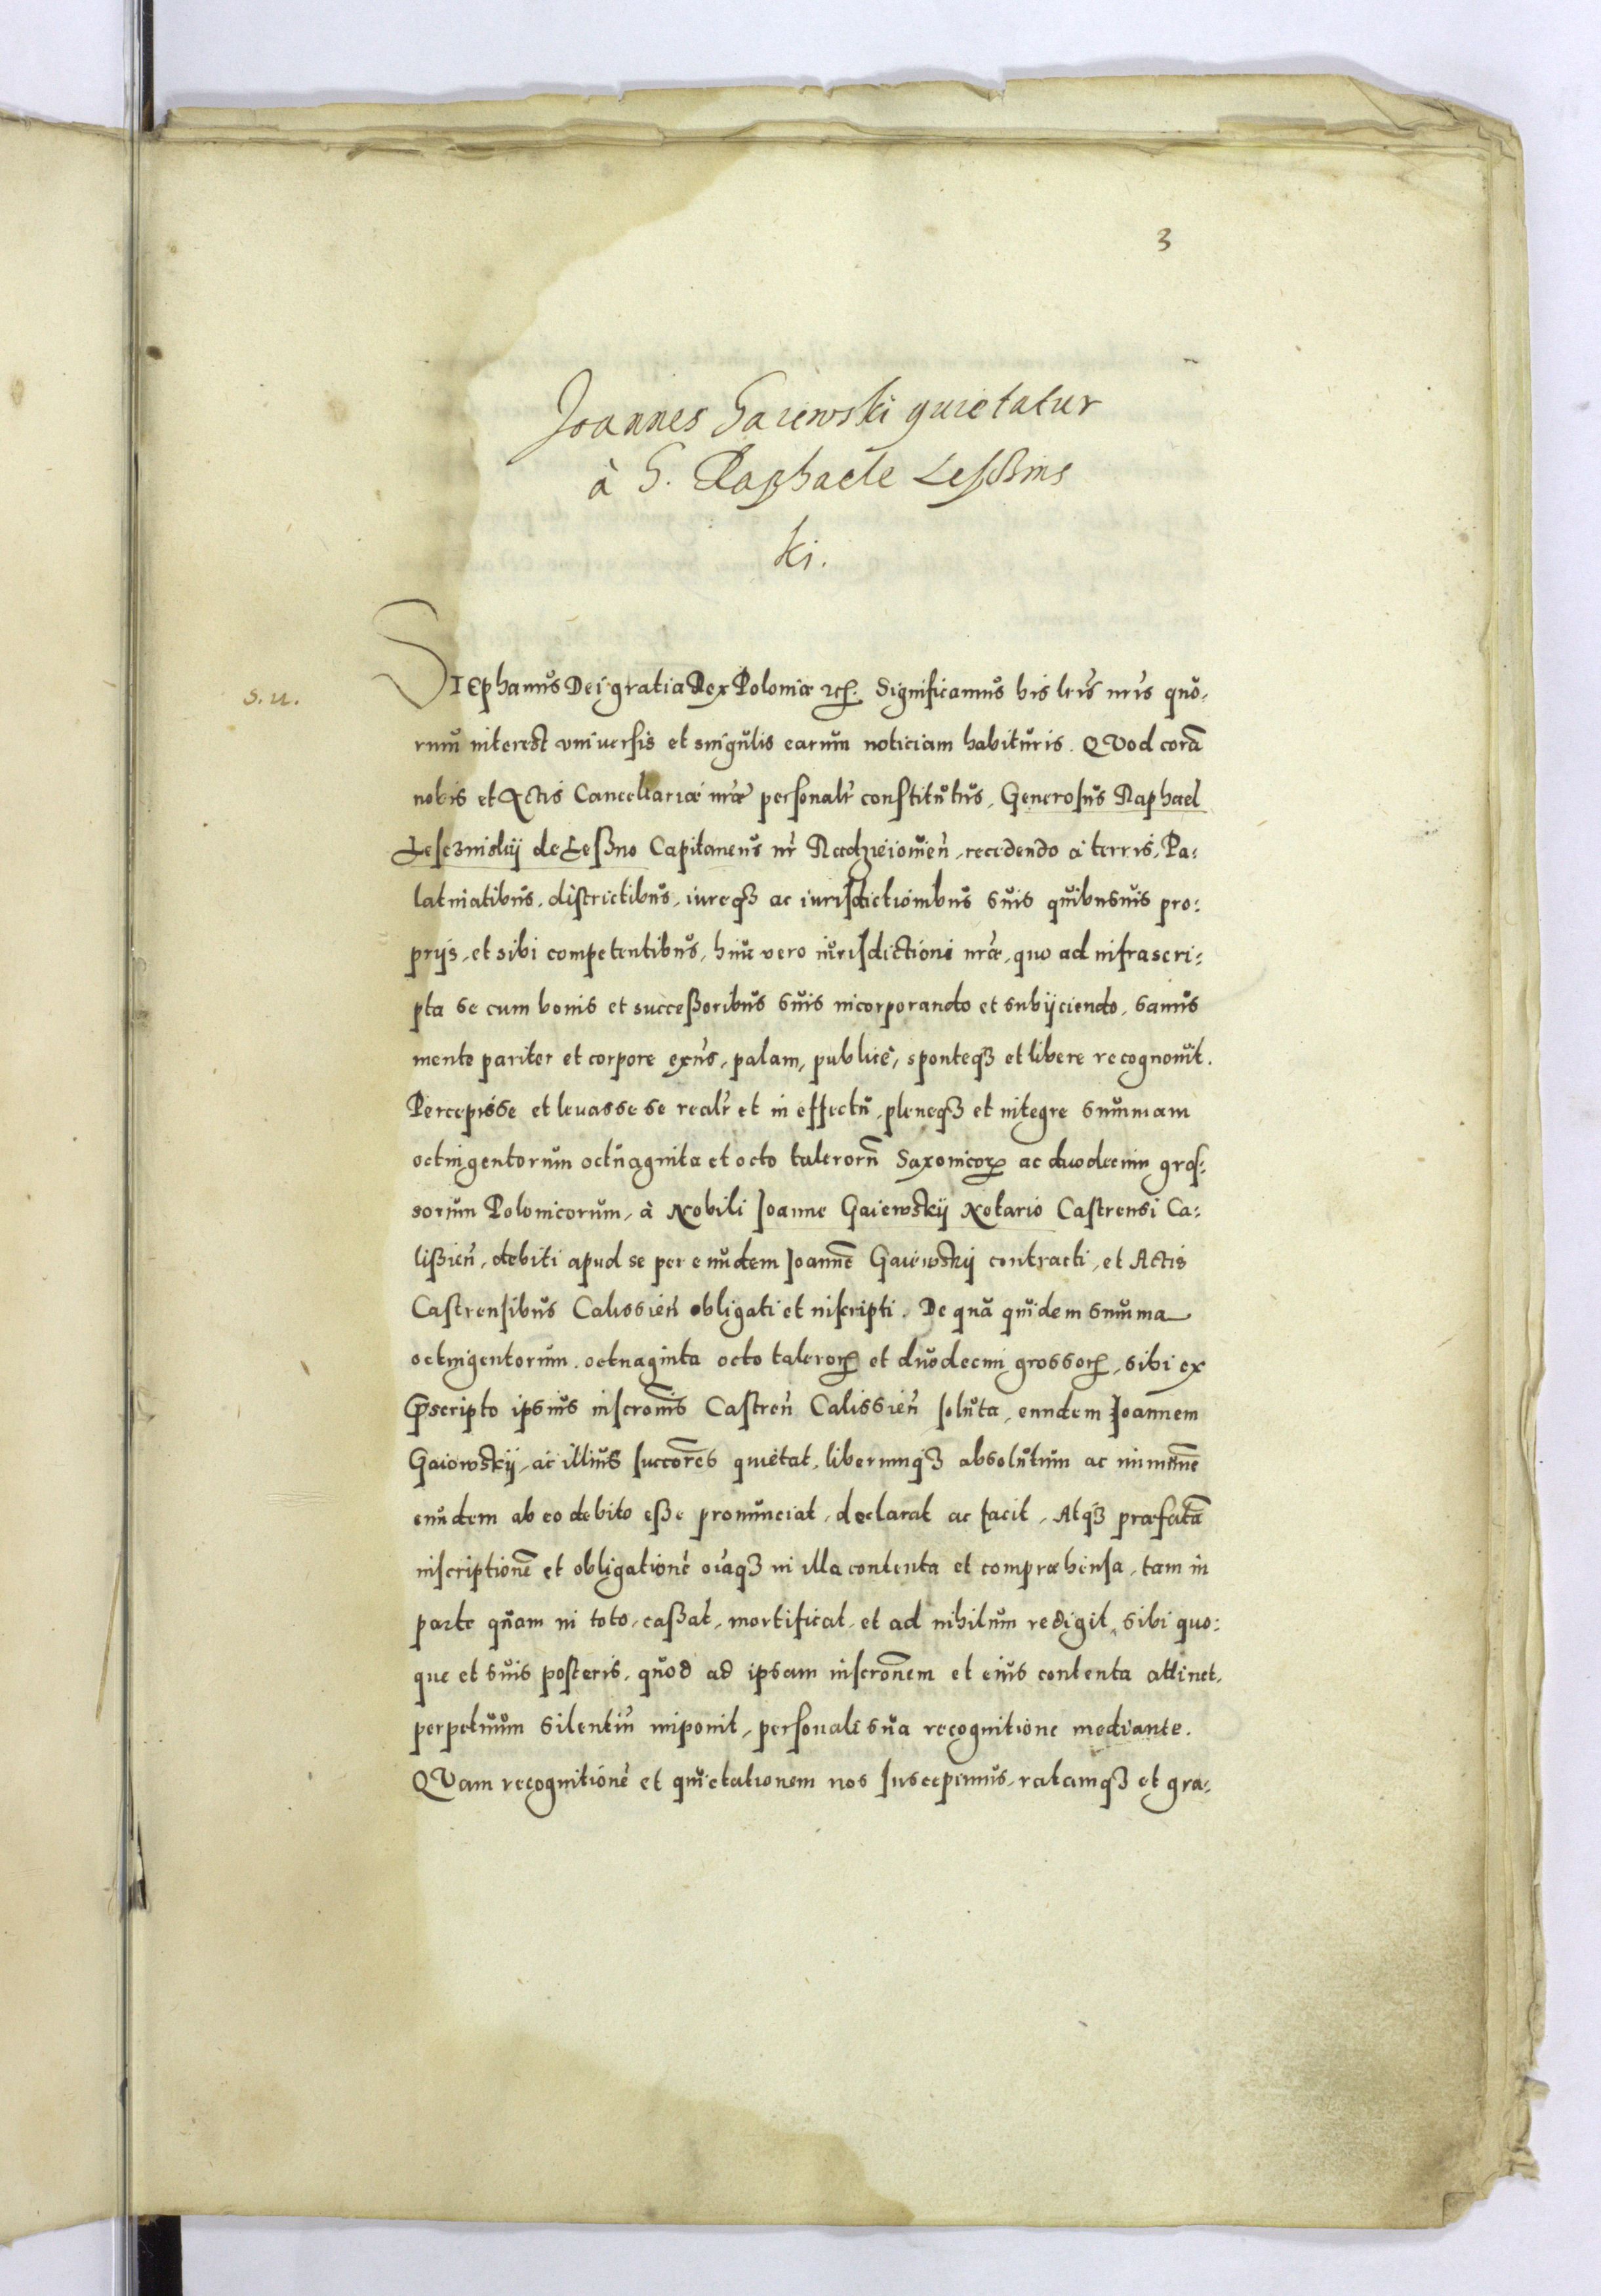 3
Joannes Gaiewski quietatur
à G. Raphaele Lessczins
ki.
s. u.
Stephanus Dei gratia Rex Poloniæ etc. Significamus his lr̃is nr̃is quo-
rum interest vniuersis et singulis earum noticiam habituris. QVod corã
nobis et Actis Cancellariæ nr̃æ personalr̃ constitutus, Generosus Raphael
Lesczniskÿ de Leßno Capitaneus nr̃ Radzieiouieñ, recedendo a terris, Pa:
latinatibus, districtibus, iureq3 ac iurisdictionibus suis quibusuis pro:
prijs, et sibi competentibus, huic vero iurisdictioni nr̃æ, quo ad infrascri:
pta se cum bonis et succeßoribus suis incorporando et subÿciendo, sanus
mente pariter et corpore exñs, palam, publicè, sponteq3 et libere recognouit.
Percepisse et leuasse se realr̃ et in effectu, pleneq3 et integre summam
octingentorum octuaginta et octo talerorũ Saxonicoꝝ ac duodecim gros:
sorum Polonicorum, à Nobili Joanne Gaiewskÿ Notario Castrensi Ca:
lißieñ, debiti apud se per eundem Joannẽ Gaiewskÿ contracti, et Actis
Castrensibus Calissieñ obligati et inscripti. De qua quidem summa
octingentorum octuaginta octo taleroꝝ et duodecim grossoꝝ, sibi ex
p̃scripto ipsius inscrõnis Castreñ Calissieñ soluta, eundem Joannem
Gaiowskÿ, ac illius succõres quietat, liberumq3 absolutum ac immunẽ
eundem ab eo debito eße pronunciat, declarat ac facit, Atq3 præfatã
inscriptionẽ et obligationẽ oĩaq3 in illa contenta et compræhensa, tam in
parte quam in toto, caßat, mortificat, et ad nihilum redigit, sibi quo:
que et suis posteris, quod ad ipsam inscrõnem et eius contenta attinet,
perpetuum silentiũ imponit, personali sua recognitione mediante.
QVam recognitionẽ et quietationem nos suscepimus, ratamq3 et gra: